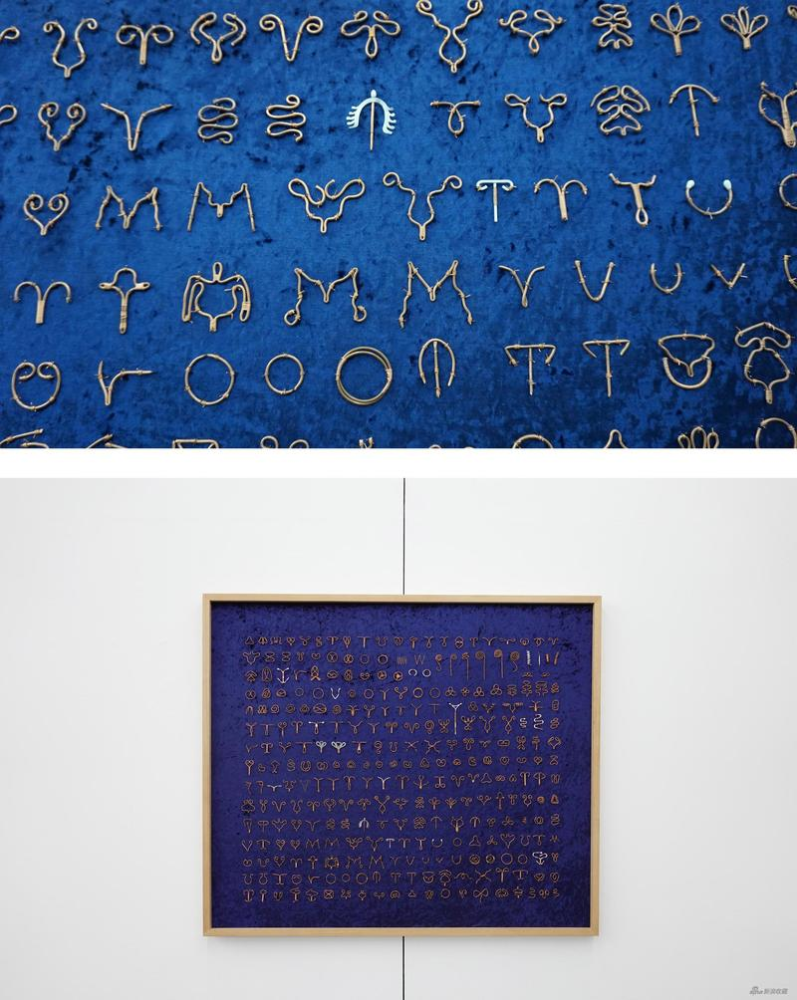 sina 新浪收藏